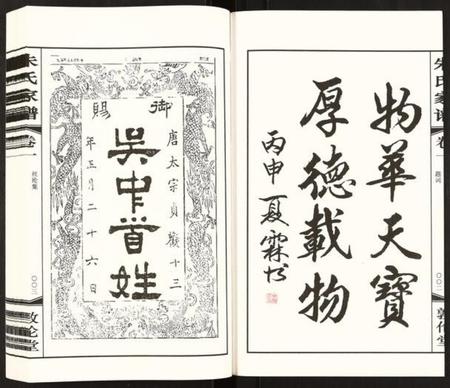 朱氏家譜
卷一
題詞
〇〇二
敦倫堂
物華天寶
厚德載物
丙申夏霖书
御賜
唐太宗貞觀十三
吳中首姓
年三月二十六日
朱氏家譜
卷一
〇〇三
敦倫堂